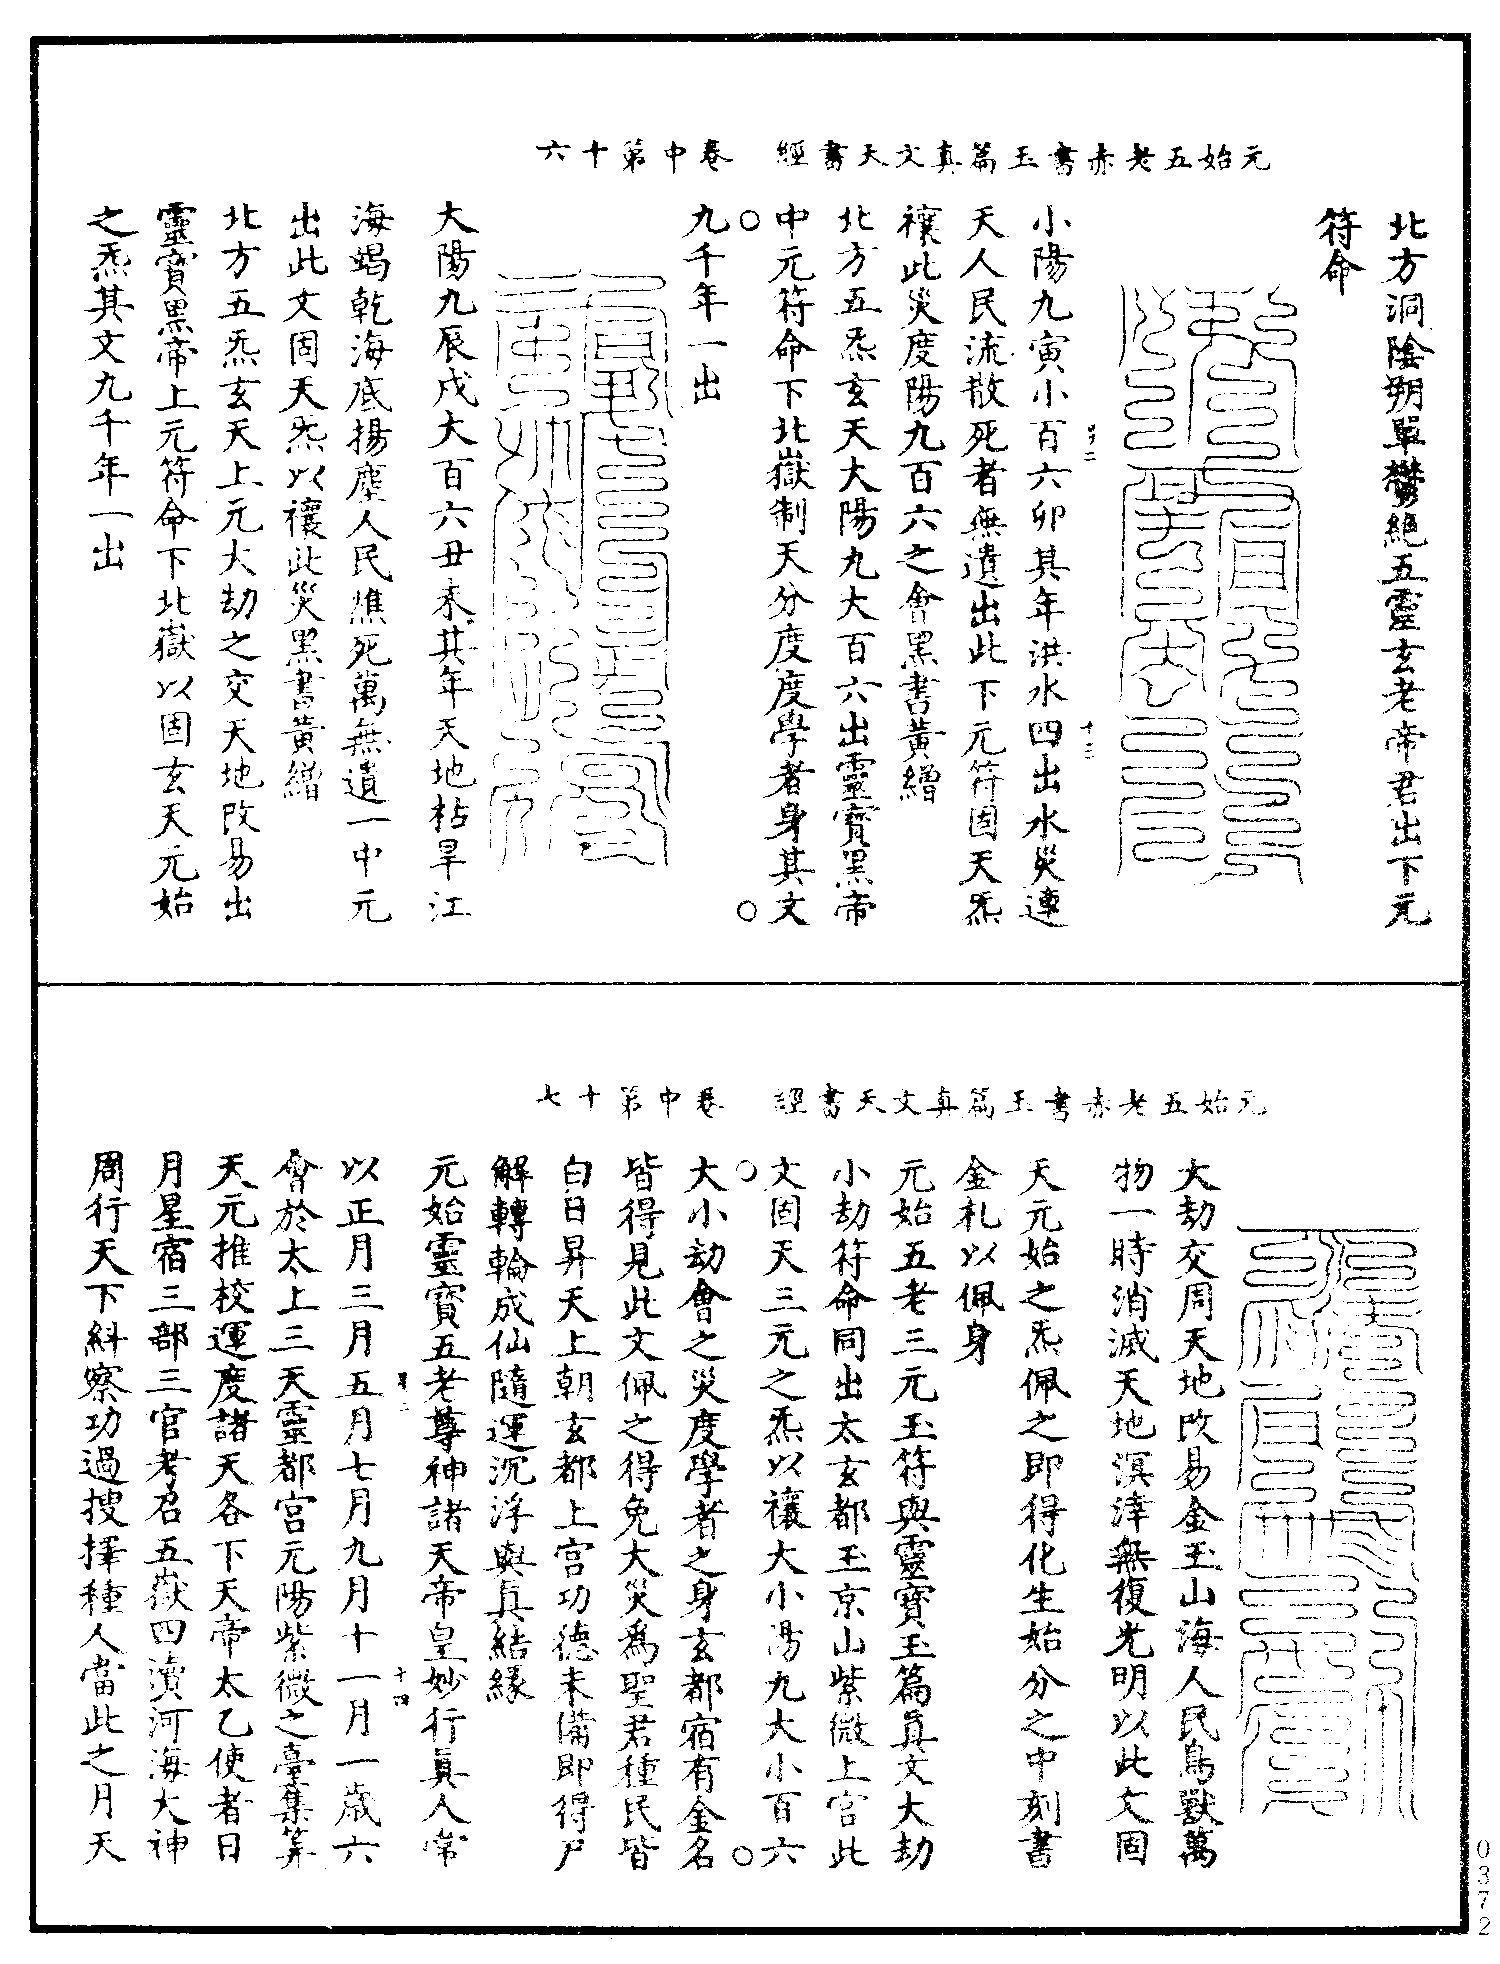 元始五老赤書玉篇真文天書經　卷中第十六
北方洞陰朔單鬱絕五靈玄老帝君出下元
符命
小陽九寅小百六卯其年洪水四出水災連
天人民流散死者無遺出此下元符固天炁
禳此災度陽九百六之會黑書黃繒
北方五炁玄天大陽九大百六出靈寶黑帝
中元符命下北嶽制天分度度學者身其文
九千年一出
大陽九辰戌大百六丑未其年天地枯旱江
海竭乾海底揚塵人民燋死萬無遺一中元
出此文固天炁以禳此災黑書黃繒
北方五炁玄天上元大劫之交天地改易出
靈寶黑帝上元符命下北嶽以固玄天元始
之炁其文九千年一出
十三
元始五老赤書玉篇真文天書經　卷中第十七
大劫交周天地改易金玉山海人民鳥獸萬
物一時消滅天地溟涬無復光明以此文固
天元始之炁佩之即得化生始分之中刻書
金札以佩身
元始五老三元玉符與靈寶玉篇真文大劫
小劫符命同出太玄都玉京山紫微上宮此
文固天三元之炁以禳大小陽九大小百六
大小劫會之災度學者之身玄都宿有金名
皆得見此文佩之得免大災為聖君種民皆
白日昇天上朝玄都上宮功德未備即得尸
解轉輪成仙隨運沉浮與真結緣
元始靈寶五老尊神諸天帝皇妙行真人常
以正月三月五月七月九月十一月一歲六
會於太上三天靈都宮元陽紫微之臺集筭
天元推校運度諸天各下天帝太乙使者日
月星宿三部三官考召五嶽四瀆河海大神
周行天下糾察功過搜擇種人當此之月天
十四
0372